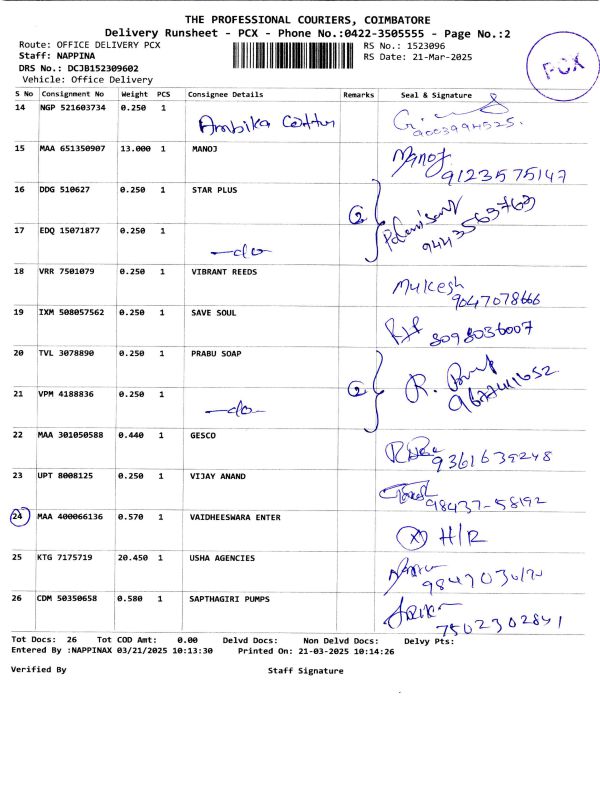 THE PROFESSIONAL COURIERS, COIMBATORE
Delivery Runsheet - PCX - Phone No.:0422-3505555 - Page No.:2
Route: OFFICE DELIVERY PCX RS No.: 1523096
Staff: NAPPINA RS Date: 21-Mar-2025
DRS No.: DCJB152309602
Vehicle: Office Delivery
PCX
S No Consignment No Weight PCS Consignee Details Remarks Seal & Signature
14 NGP 521603734 0.250 1 Ambika Cotton
9003994525.
15 MAA 651350907 13.000 1 MANOJ Manoj
9123575147
16 DDG 510627 0.250 1 STAR PLUS
2 9443563763
17 EDQ 15071877 0.250 1 —do—
18 VRR 7501079 0.250 1 VIBRANT REEDS Mukesh
9047078666
19 IXM 508057562 0.250 1 SAVE SOUL 8098036007
20 TVL 3078890 0.250 1 PRABU SOAP
2 R.
21 VPM 4188836 0.250 1 —do—
22 MAA 301050588 0.440 1 GESCO 9361639248
23 UPT 8008125 0.250 1 VIJAY ANAND 98437-58192
24 MAA 400066136 0.570 1 VAIDHEESWARA ENTER X H/R
25 KTG 7175719 20.450 1 USHA AGENCIES
26 CDM 50350658 0.580 1 SAPTHAGIRI PUMPS 7502302841
Tot Docs: 26 Tot COD Amt: 0.00 Delvd Docs: Non Delvd Docs: Delvy Pts:
Entered By :NAPPINAX 03/21/2025 10:13:30 Printed On: 21-03-2025 10:14:26
Verified By Staff Signature